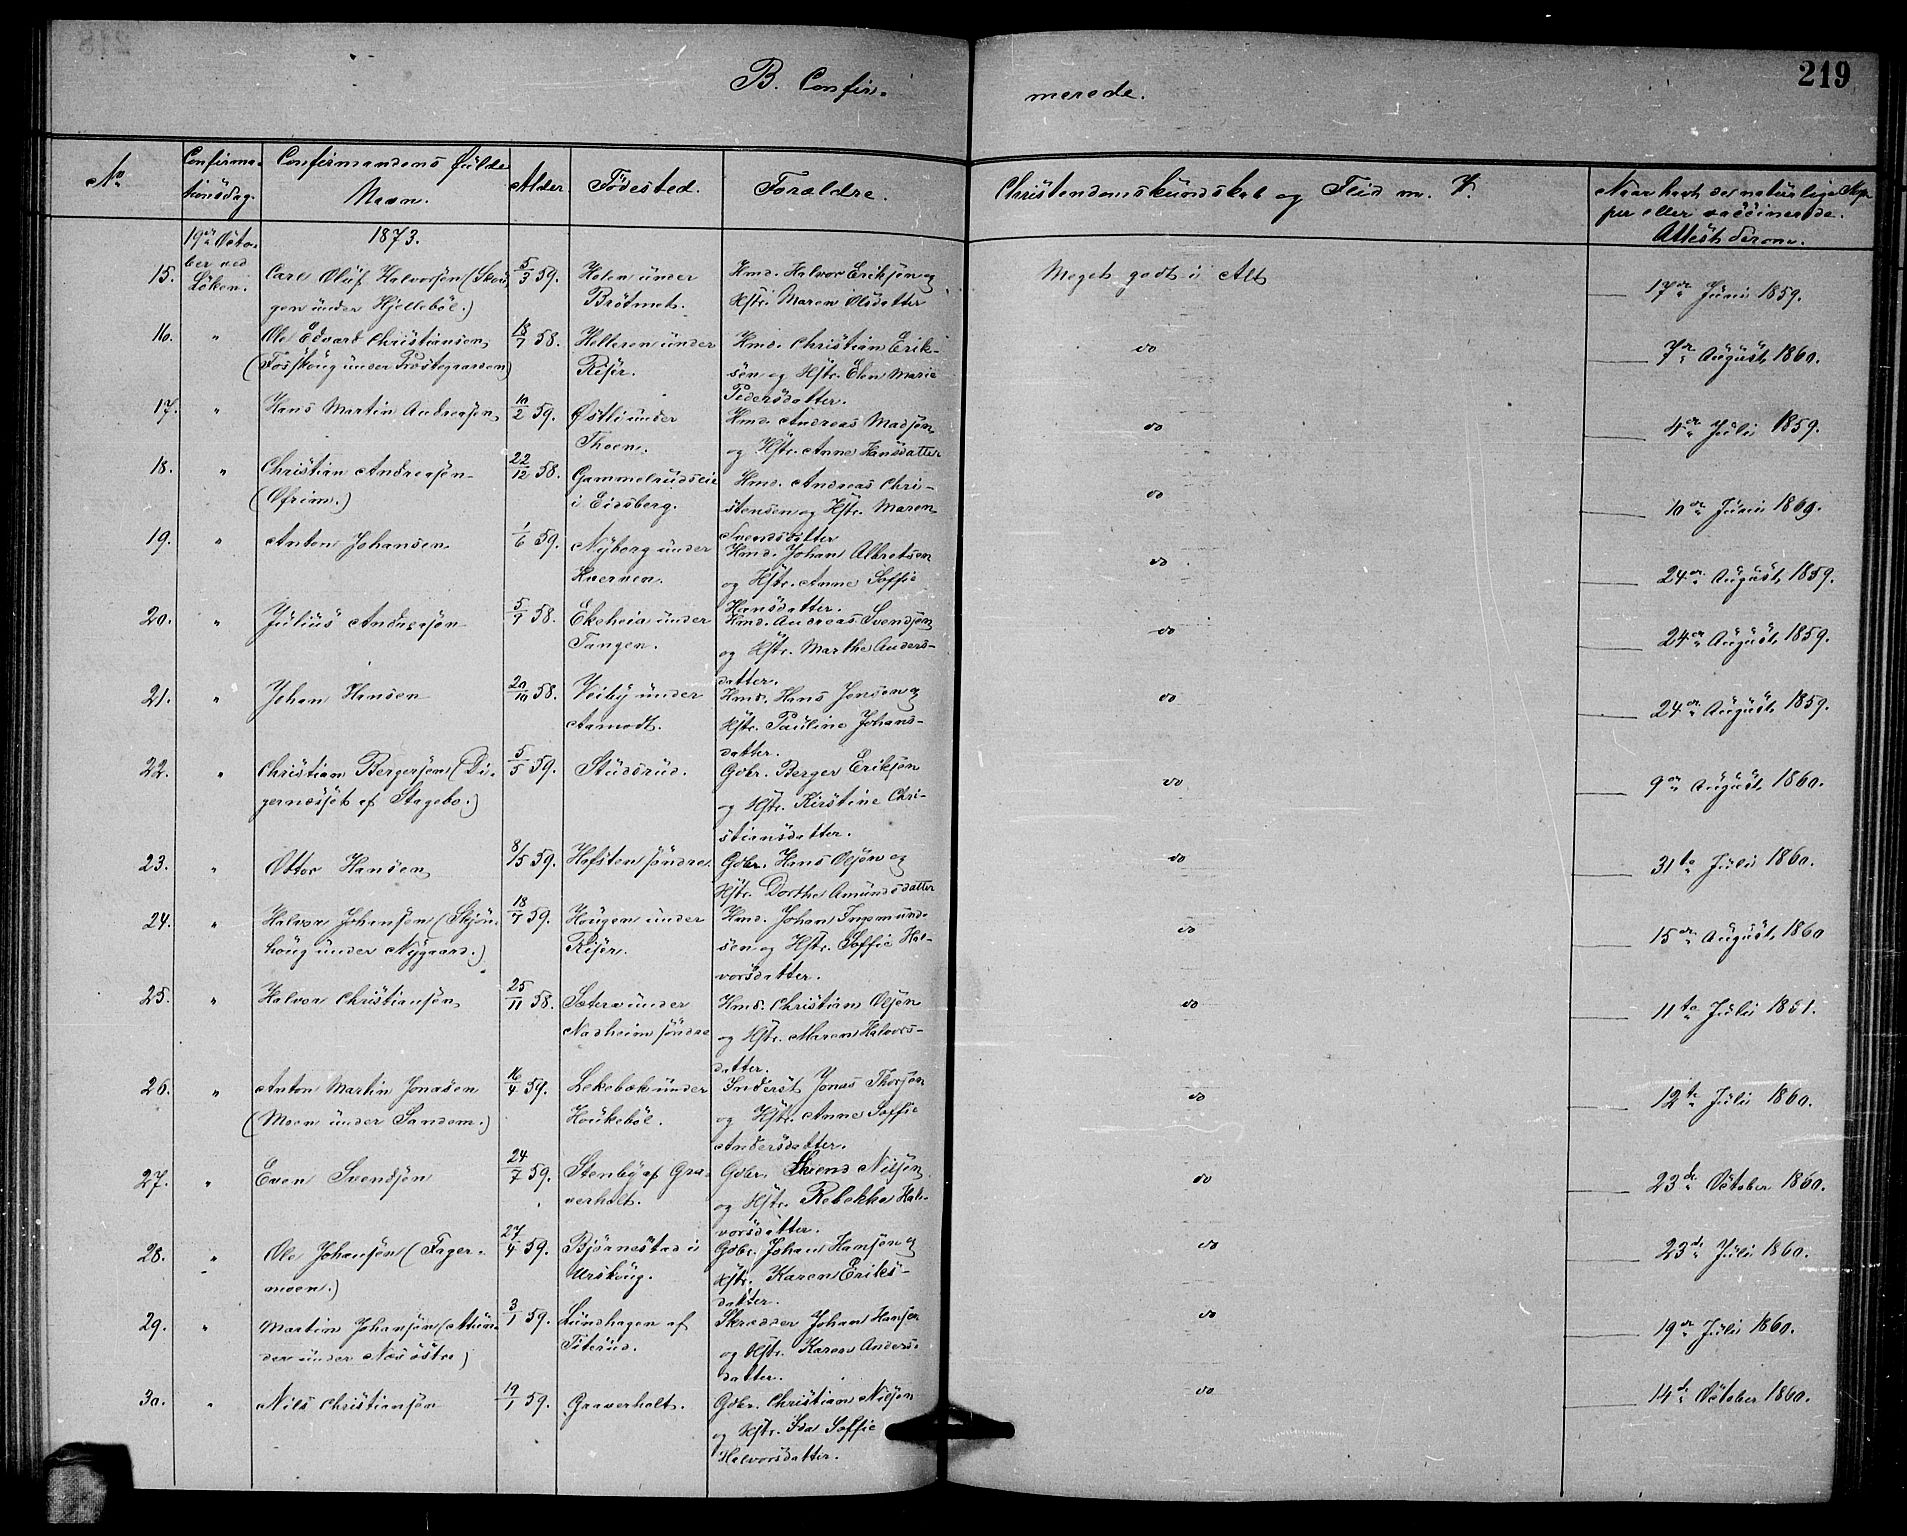 219
B. Confir-
merede.
No
Confirma-
tionsdag.
Confirmandens Fulde
Navn.
Alder
Fødested.
Forældre.
Christendomskundskab og Flid m. V.
Naar havt de naturlige Kop-
per eller vaccinerede.
Attest derom.
19de Octo-
ber ved
Løken.
1873.
15.
Carl Oluf Halvorsen (Skou-
gen under Hjellebøl.)
5/3 59.
Holen under
Brøtmet.
Hmd. Halvor Eriksøn og
Hstr. Maren Olsdatter
Meget godt i Alt
17de Juni 1859.
16. "
Ole Edvard Christiansen
(Fosskoug under Præstegaarden)
18/7 58.
Helleren under
Risør.
Hmd. Christian Erik-
sen og Hstr. Elen Marie
Pedersdatter.
do
7de August 1860.
17. "
Hans Martin Andreasøn
10/2 59.
Østli under
Thoen.
Hmd. Andreas Madsøn
og Hstr. Anne Hansdatter
do
4de Juli 1859.
18. "
Christian Andreasøn
(Ofrim.)
22/12 58.
Gammelrudseie
i Eidsberg.
Hmd. Andreas Chri-
stensen og Hstr. Maren
Svendsdatter
do
10de Juni 1869.
19. "
Anton Johansen
1/6 59.
Nyborg under
Kvernen.
Hmd. Johan Albretsen
og Hstr. Anne Soffie
Hansdatter.
do
24de August 1859.
20. "
Julius Andreasøn
5/9 58.
Ekeheia under
Tangen.
Hmd. Andreas Svendsøn
og Hstr. Marthe Anders-
datter.
do
24de August 1859.
21. "
Johan Hansen
20/10 58.
Veiby under
Aamodt.
Hmd. Hans Jensen og
Hstr. Pauline Johans-
datter.
do
24de August 1859.
22. "
Christian Bergersøn (Di-
gernæsset af Stagebo.)
5/5 59.
Studsrud.
Gdbr. Berger Eriksøn
og Hstr. Kirstine Chri-
stiansdatter.
do
9de August 1860.
23. "
Ottor Hansen
8/5 59.
Hofsten søndre
Gdbr. Hans Olsøn og
Hstr. Dorthe Amundsdatter
do
31te Juli 1860.
24. "
Halvor Johansøn (Skjøn-
houg under Nygaard.)
18/7 59.
Haugen under
Risør.
Hmd. Johan Ingmund-
sen og Hstr. Soffie Hal-
vorsdatter.
do
15de August 1860
25. "
Halvor Christiansøn
25/11 58.
Sætern under
Nadheim søndre
Hmd. Christian Olsøn
og Hstr. Maren Halvors-
datter.
do
11te Juli 1851.
26. "
Anton Martin Jonasen
(Moen under Sandem.)
16/4 59.
Lekebæk under
Houkebøl.
Inderst Jonas Thorsøn
og Hstr. Anne Soffie
Andersdatter.
do
12te Juli 1860.
27. "
Even Svendsøn
24/7 59.
Stenby af Gra-
verholt.
Gdbr. Svend Nilsøn
og Hstr. Rebekka Hal-
vorsdatter.
do
23de October 1860.
28. "
Ole Johansøn (Fager-
moen.)
27/4 59.
Bjørnestad i
Urskoug.
Gdbr. Johan Hansøn og
Hstr. Karen Eriks-
datter.
do
23de Juli 1860.
29. "
Martin Johansøn (Mun-
der under Næs østre)
3/1 59.
Lundhagen af
Titerud.
Skrædder Johan Hansen
og Hstr. Karen Anders-
datter.
do
19de Juli 1860.
30. "
Nils Christiansøn
19/1 59.
Graverholt.
Gdbr. Christian Nilsøn
og Hstr. Ida Soffie
Halvorsdatter.
do
14de October 1860.